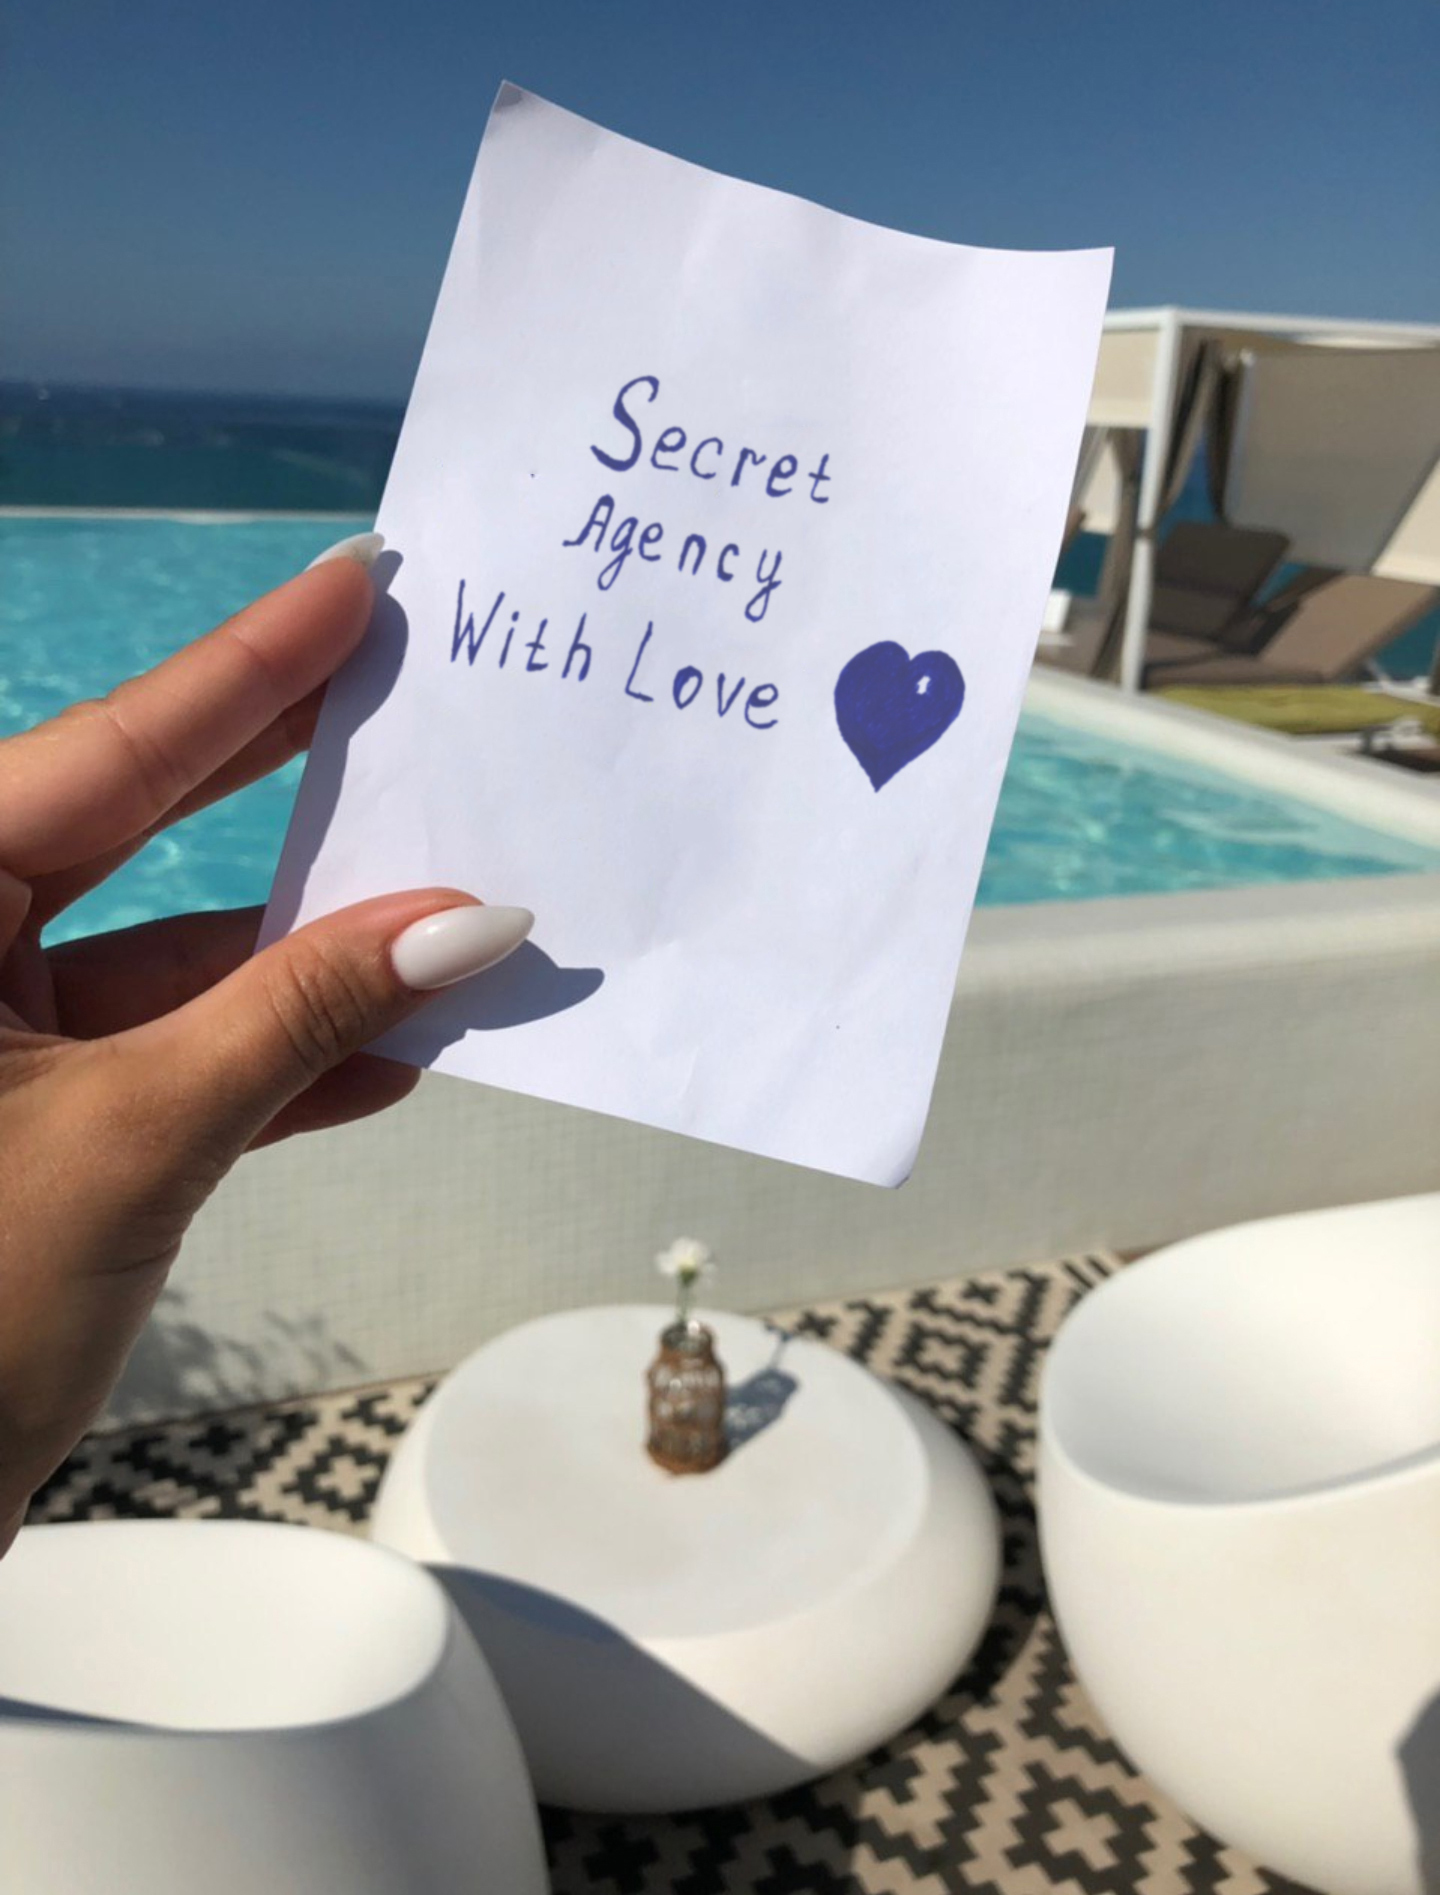 Secret
Agency
With Love